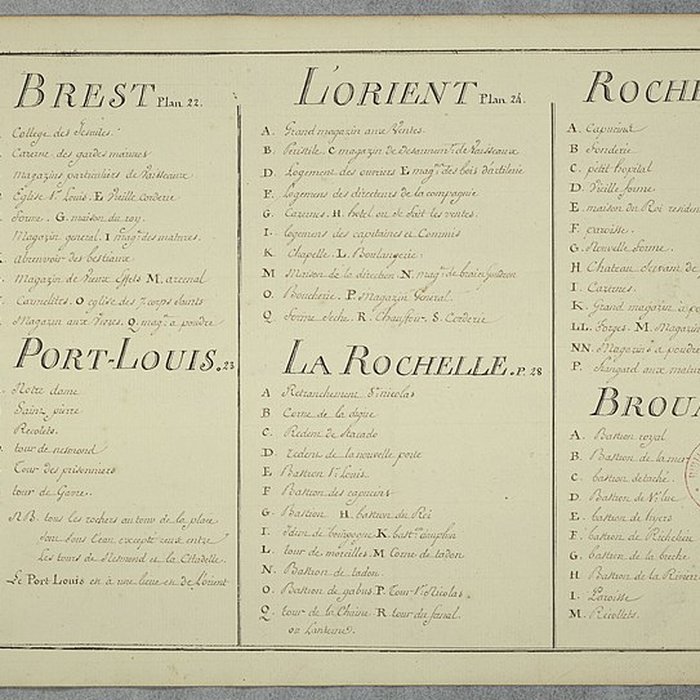 BREST Plan 22.
College des Jesuites.
Caserne des gardes marines
magazins particuliers de Vaisseaux
Eglise St. Louis. E Vieille corderie
forme. G. maison du roy.
Magazin general. I magns. des matures.
abreuvoir des bestiaux
Magazin de Vieux Effets M. arcenal
Carmelites. O eglise des 7 corps saints
Magazin aux Vivres. Q. magn. a poudre
PORT-LOUIS. 23
Notre dame
Saint pierre
Recolets.
tour de nesmond
Tour des prisonniers
tour de Gavre.
NB. tous les rochers autour de la place
sont sous l'eau excepté ceux entre
Les tours de Nesmond et la Citadelle.
Le Port Louis est à une lieue en de L'orient
L'ORIENT Plan 24.
A. Grand magazin aux Ventes.
B. Peristile. C magazin de Desarmt. de Vaisseaux
D. Logement des ouvriers E magn. des bois d'artilerie
F. Logemens des directeurs de la compagnie
G. Casernes. H. hotel ou se fait les ventes.
I. logemens des capitaines et Commis
K. Chapelle. L. Boulangerie.
M Maison de la direction. N. magn. de brai Goudron
O. Boucherie. P. Magazin General.
Q. Forme Seche. R. Chauffoir. S. Corderie
LA ROCHELLE. P. 28
A Retranchement St. nicolas
B. Corne de la digue
C. Redent de Stacado
D. redent de la nouvelle porte
E Bastion St. Louis
F Bastion des capucins
G. Bastion H. bastion du Roi
I. Idem de bourgogne K. bastn. dauphin
L. tour de moreilles. M Corne de tadon
N. Bastion de tadon.
O. Bastion de gabus. P. Tour St. Nicolas
Q. tour de la Chaine R. tour du fanal
ou Lanterne.
ROCHE
A. Capucins
B Fonderie
C. petit hopital
D. Vieille forme
E. maison du Roi residen
F. caroisse.
G. Nouvelle forme.
H Chateau servant de
I. Casernes.
K. Grand magazin a po
LL. Forges. M. Magazin
NN. Magazins a poudre
P. hangard aux matur
BROUA
A. Bastion royal
B. Bastion de la mer
C. bastion detaché.
D. Bastion de St. luc
E. bastion de hiers
F. bastion de Richelieu
G. bastion de la breche
H. Bastion de la Rivier
L. Paroisse
M. Recollets.